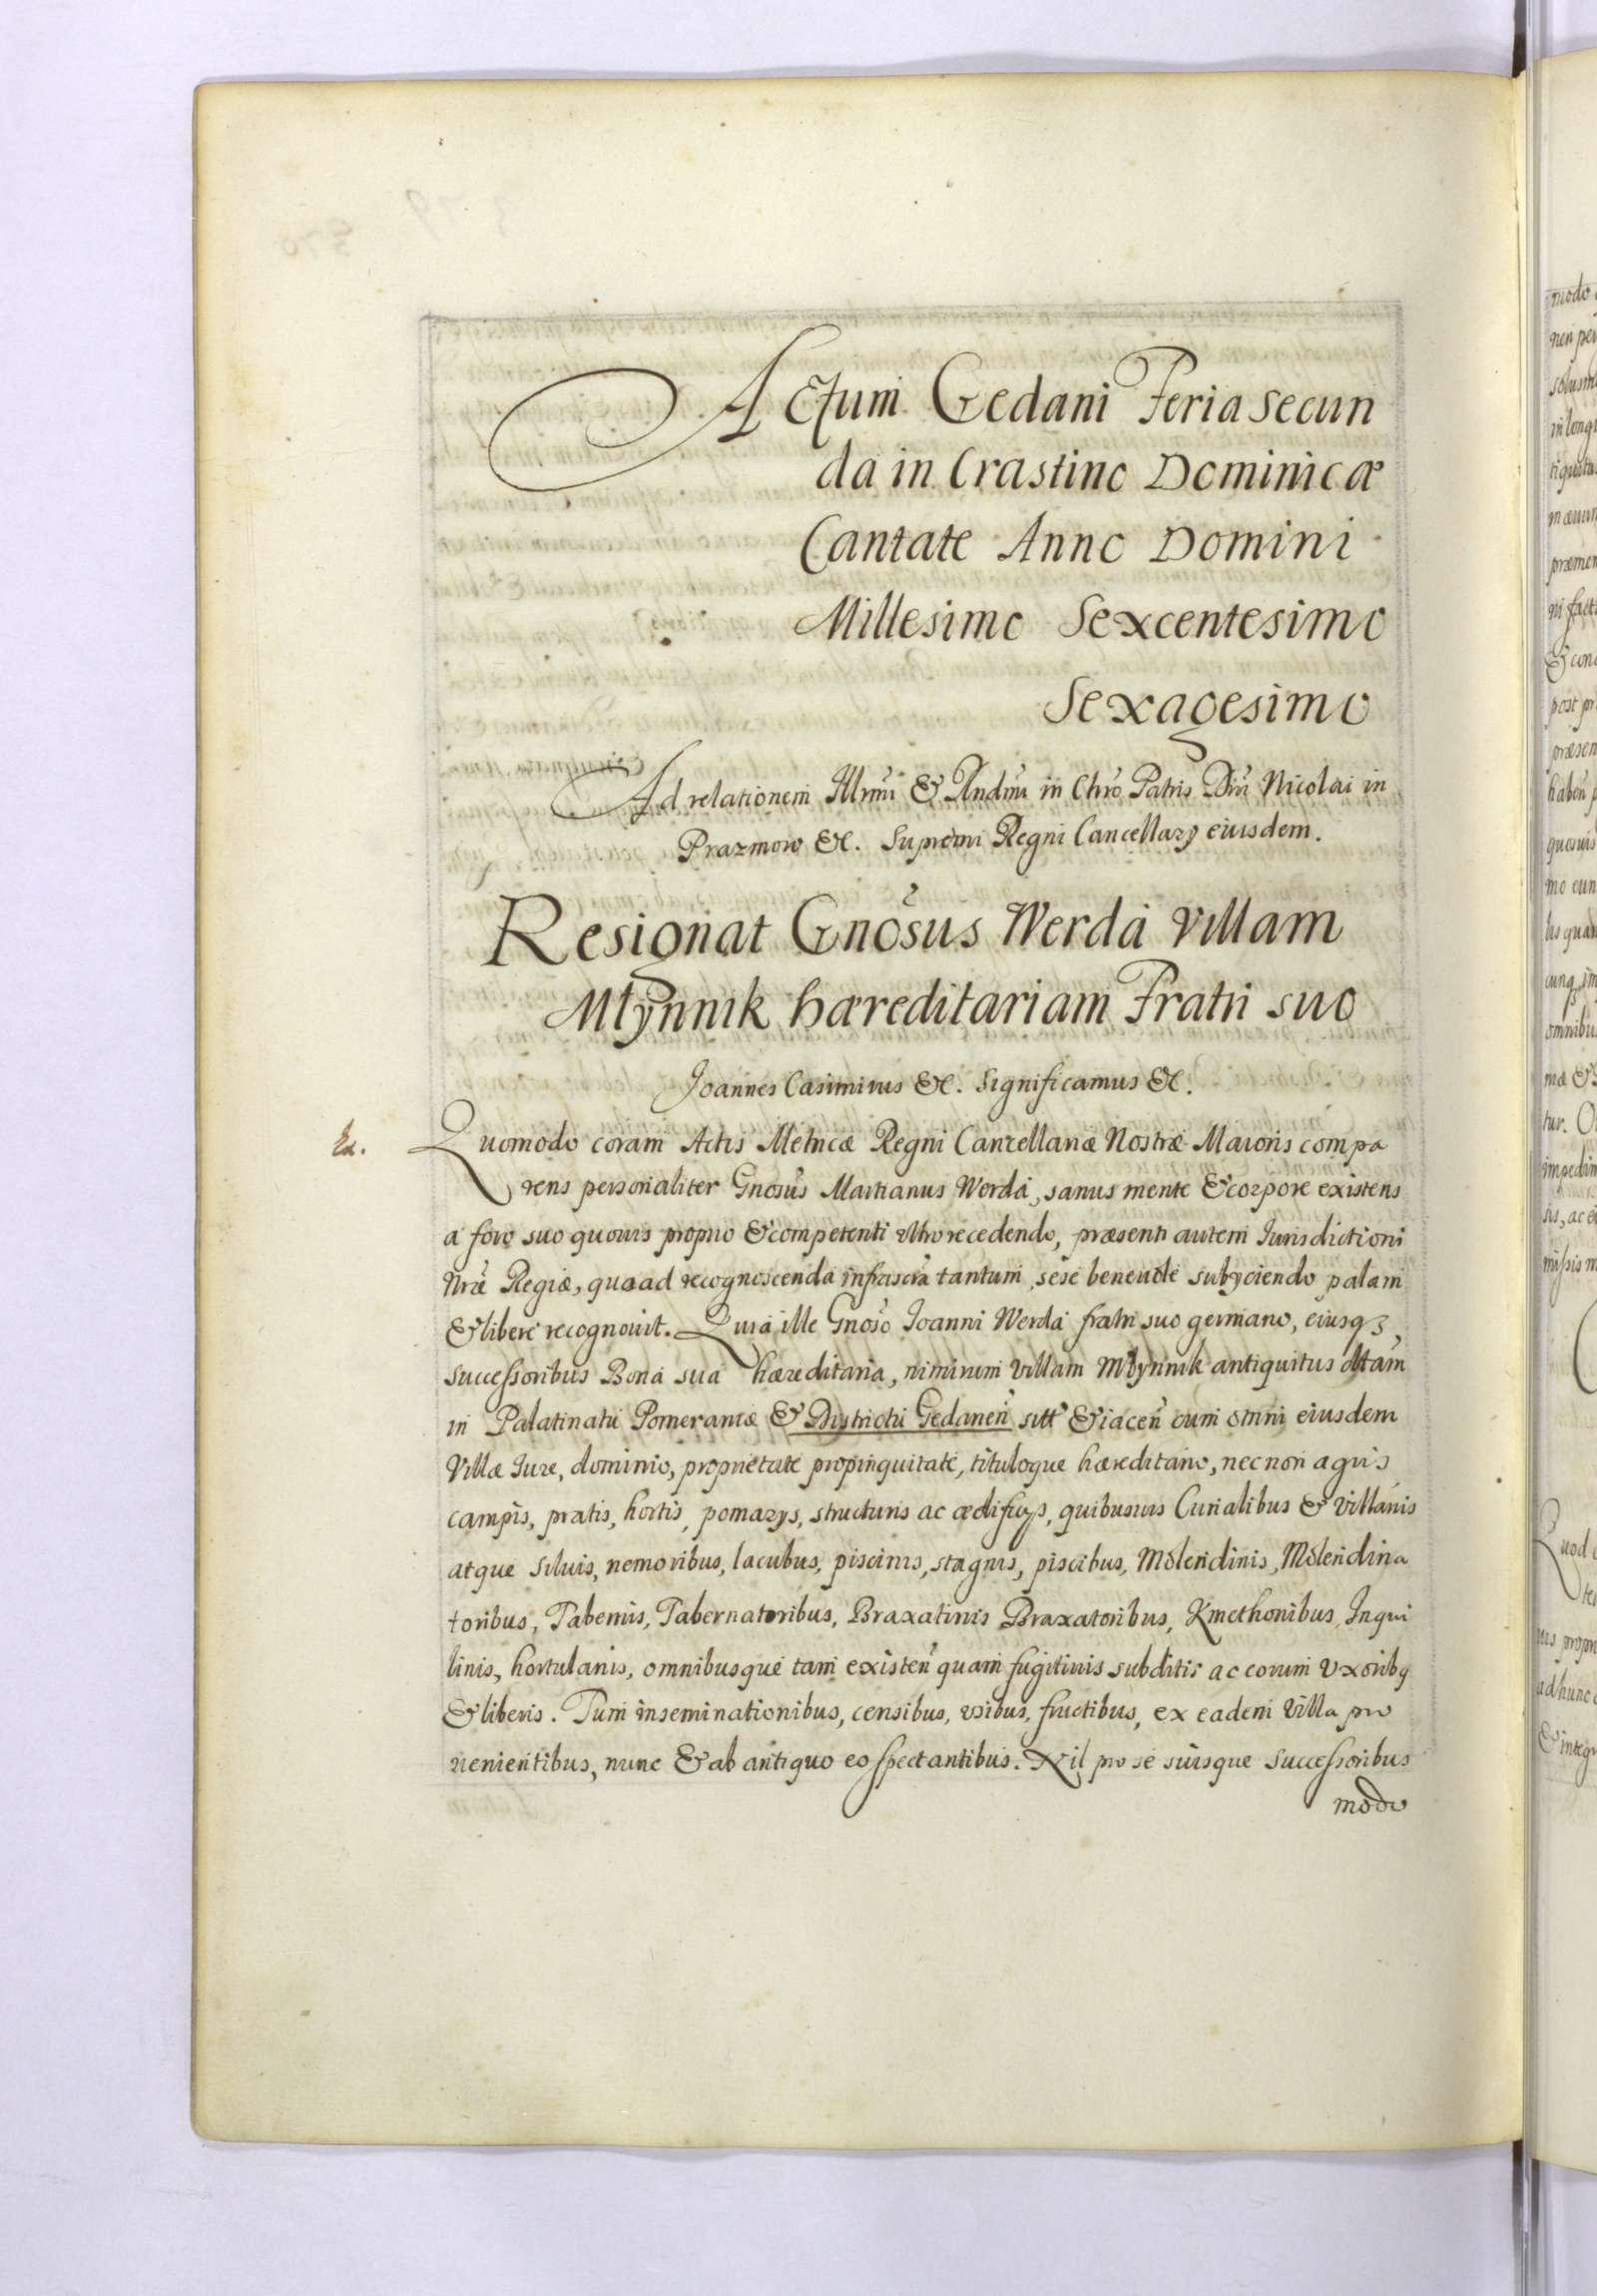 Actum Gedani Feria Secun
da in Crastino Dominicæ
Cantate Anno Domini
Millesimo Sexcentesimo
Sexagesimo
Ad relationem Illrmi & Rndmi in Chro Patris Dni Nicolai in
Prazmow &c. Supremi Regni Cancellarÿ eiusdem.
Resignat Gnosus Werda Villam
Młynnik hæreditariam Fratri suo
Joannes Casimirus &c. Significamus &c.
Quomodo coram Actis Metricæ Regni Cancellariæ Nostræ Maioris compa
rens personaliter Gnosus Martianus Werda, sanus mente & corpore existens
a foro suo quouis proprio & competenti vltro recedendo, præsenti autem Jurisdictioni
Nræ Regiæ, quoad recognoscenda infrascra tantum, sese beneuole subÿciendo palam
& libere recognouit. Quia ille Gnoso Joanni Werda fratri suo germano, eiusqꝫ
successoribus Bona sua hæreditaria, nimirum Villam Młynnik antiquitus dttam
in Palatinatu Pomeraniæ & Districtu Gedanen sitt & iacen cum omni eiusdem
Villæ Jure, dominio, proprietate propinquitate, tituloque hæreditario, necnon agris
campis, pratis, hortis, pomarÿs, structuris ac ædificÿs, quibusuis Curialibus & Villanis
atque siluis, nemoribus, lacubus, piscinis, stagnis, piscibus, Molendinis, Molendina
toribus, Tabernis, Tabernatoribus, Braxatinis Braxatoribus, Kmethonibus, Inqui
linis, hortulanis, omnibusque tam existen quam fugitiuis subditis ac eorum Vxoribꝰ
& liberis. Tum inseminationibus, censibus, vsibus, fructibus, ex eadem Villa pro
uenientibus, nunc & ab antiquo eo spectantibus. Nil pro se suisque successoribus
modo